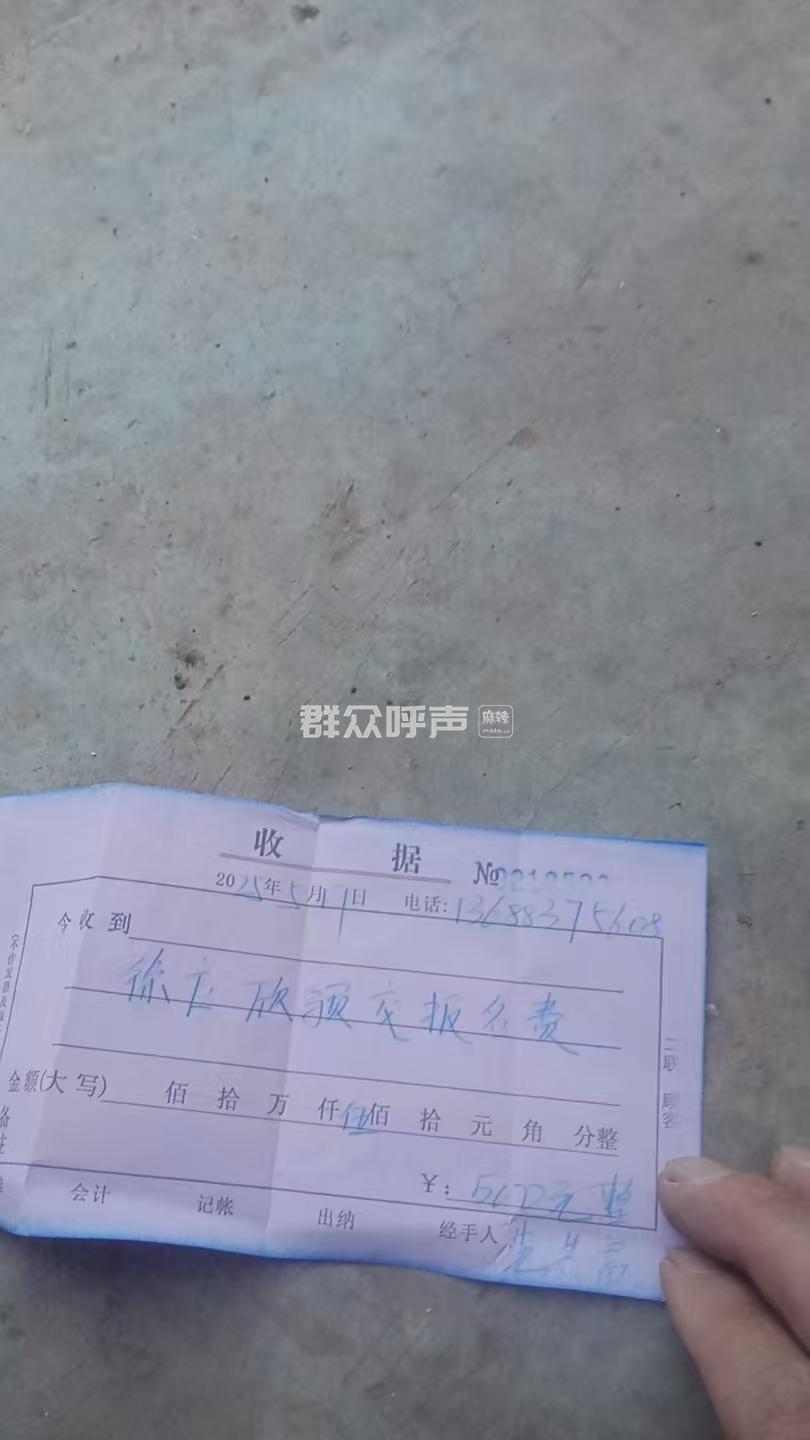 群众呼声 麻辣
收据 №
2025年5月1日 电话:13688375608
今收到
徐 欣预交报名费
金额(大写) 佰拾万仟伍佰拾元角分整
¥: 500元整
会计 记帐 出纳 经手人
二联 顾客
备注